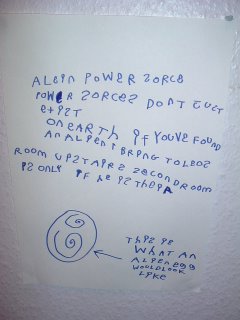 ALEIN POWER SORCE
POWER SORCES DONT CUCT
EXIST
ON EARTH IF YOUVE FOUND
AN ALIEN I BRING TO LEOS
ROOM UPSTAIRS SECOND ROOM
IS ONLY IF HE IS THEIR
THIS IS
WHAT AN
ALIEN EGG
WOULD LOOK
LIKE